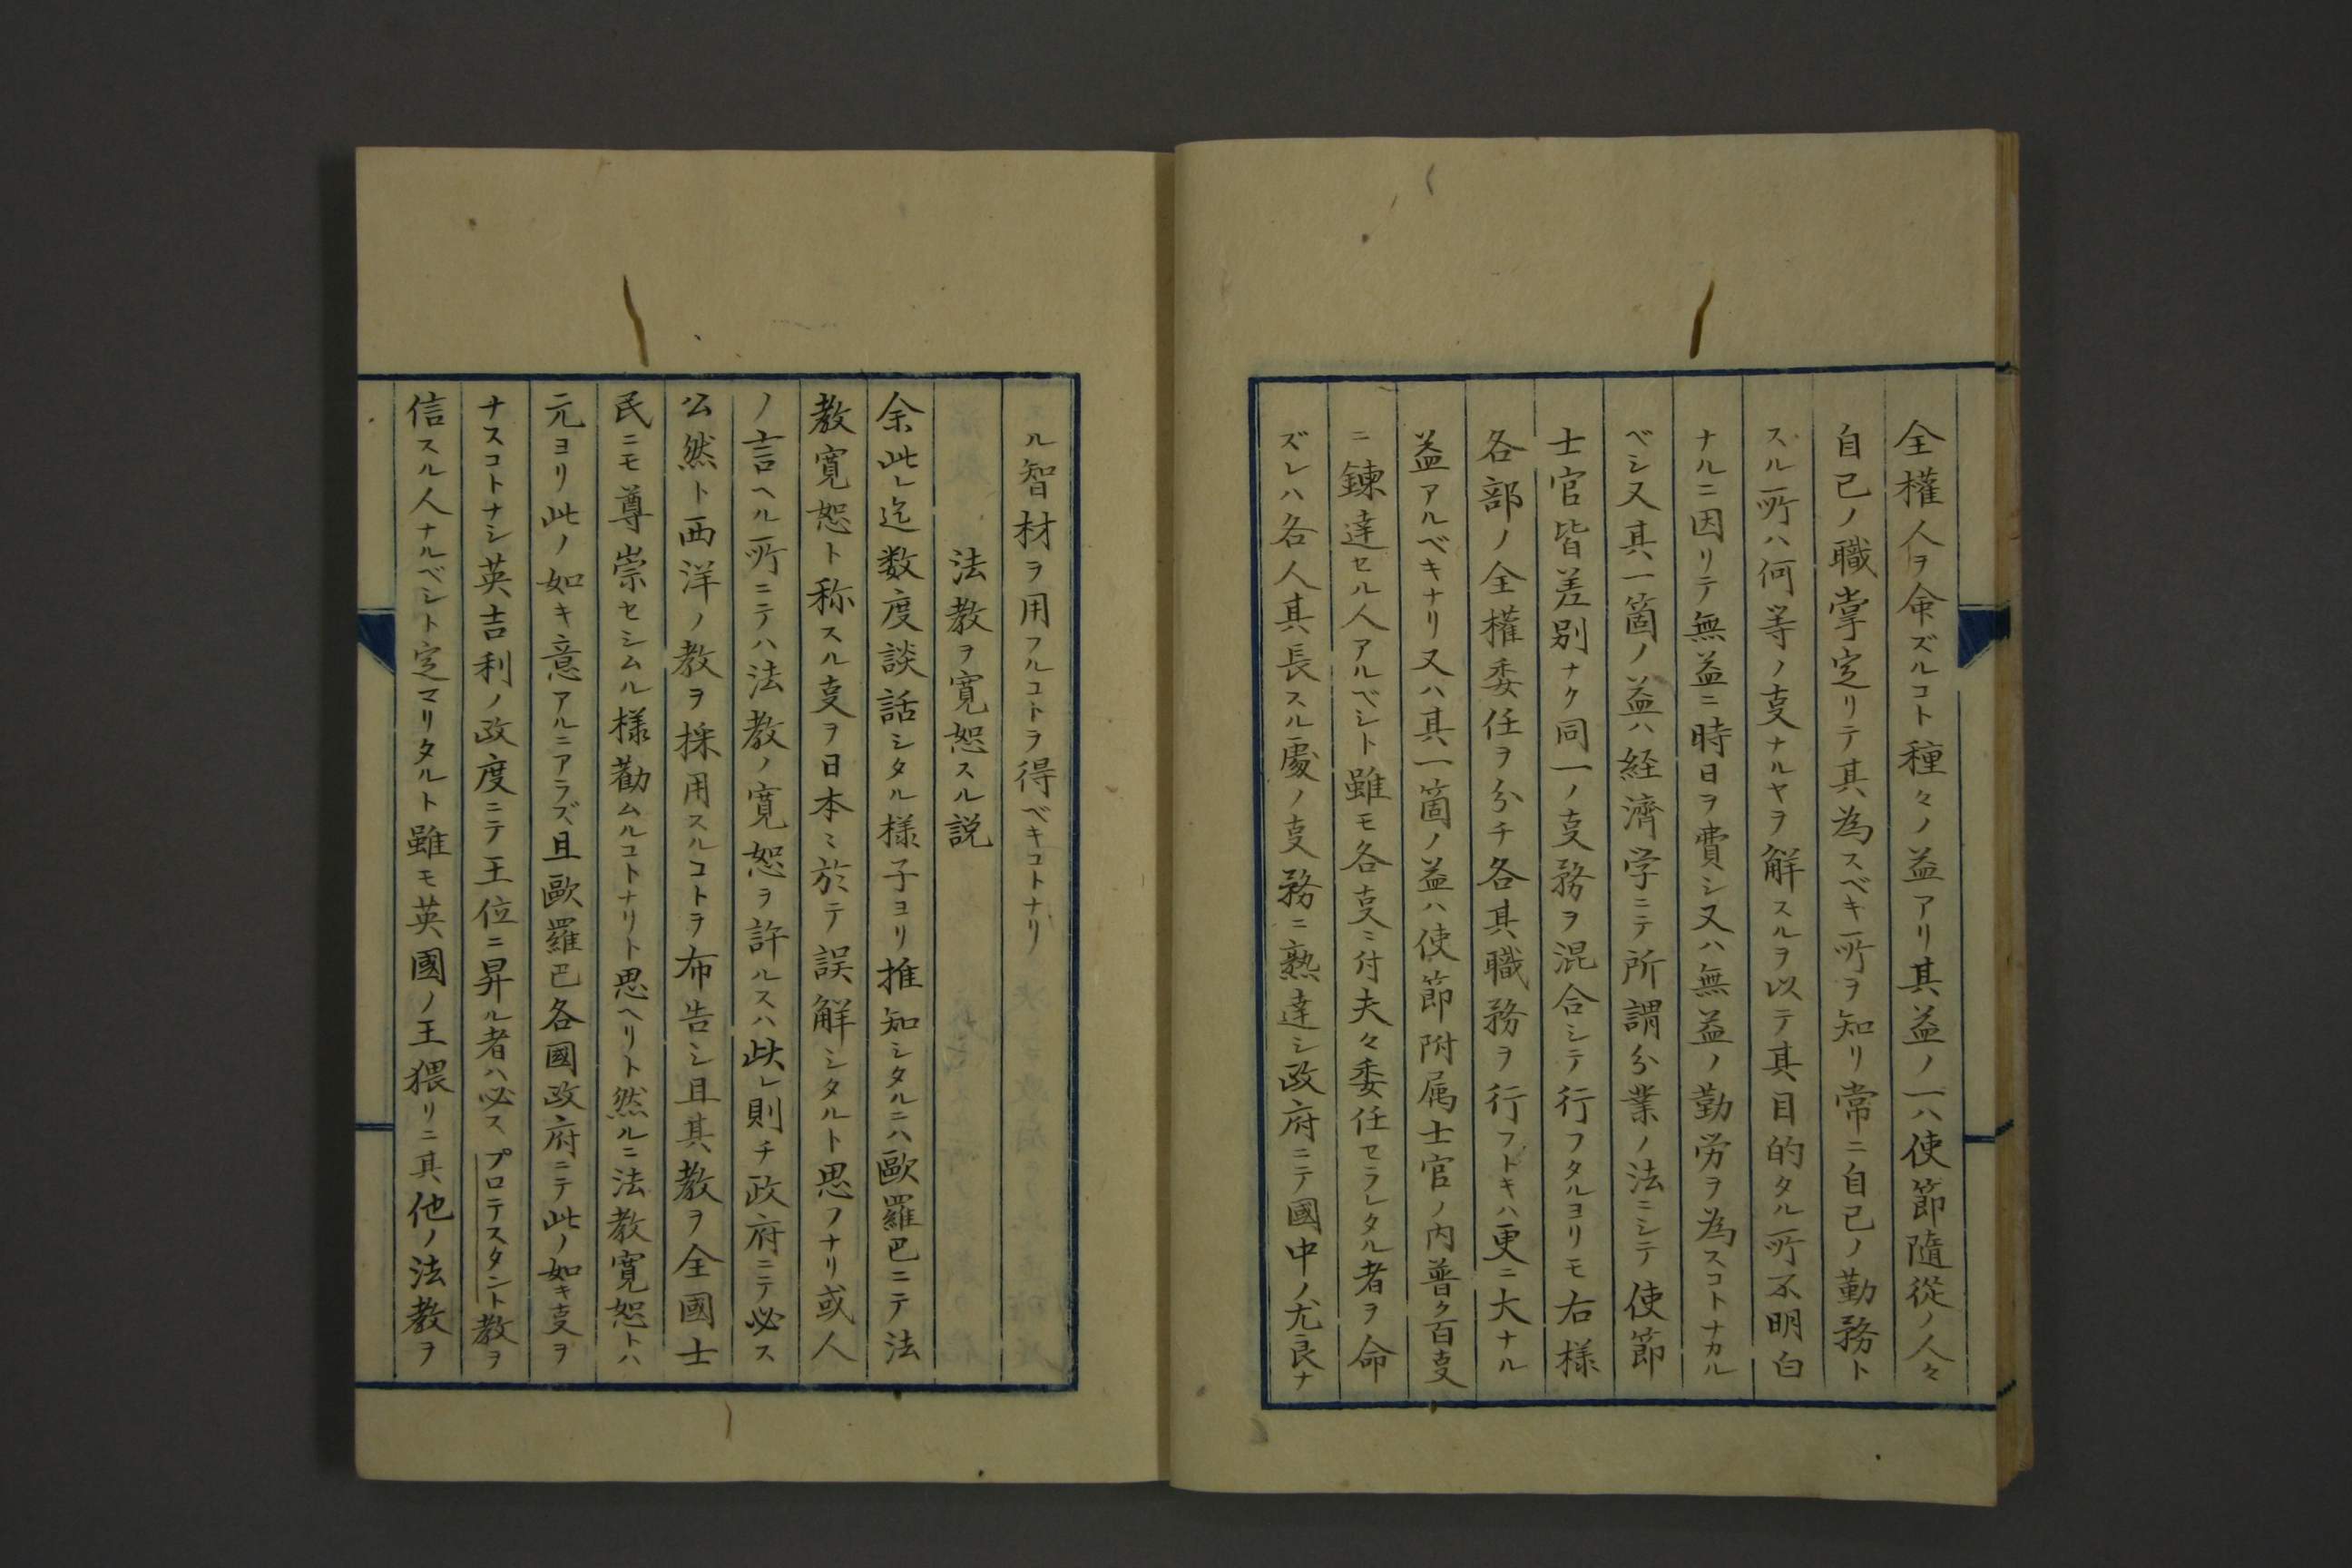 全權人ヲ命ズルコト種々ノ益アリ其益ノ一ハ使節隨從ノ人々
自己ノ職掌定リテ其為スベキ所ヲ知リ常ニ自己ノ勤務ト
スル所ハ何等ノ叓ナルヤヲ解スルヲ以テ其目的タル所不明白
ナルニ因リテ無益ニ時日ヲ費シ又ハ無益ノ勤労ヲ為スコトナカル
ベシ又其一箇ノ益ハ経濟学ニテ所謂分業ノ法ニシテ使節
士官皆差別ナク同一ノ叓務ヲ混合シテ行フタルヨリモ右様
各部ノ全權委任ヲ分チ各其職務ヲ行フトキハ更ニ大ナル
益アルベキナリ又ハ其一箇ノ益ハ使節附属士官ノ内普ク百叓
ニ鍊達セル人アルベシト雖モ各叓ニ付夫々委任セラレタル者ヲ命
ズレハ各人其長スル處ノ叓務ニ熟達シ政府ニテ國中ノ尤良ナ
ル智材ヲ用フルコトヲ得ベキコトナリ
法教ヲ寛恕スル説
余此レ迄数度談話シタル様子ヨリ推知シタルニハ歐羅巴ニテ法
教寛恕ト称スル叓ヲ日本ニ於テ誤解シタルト思フナリ或人
ノ言ヘル所ニテハ法教ノ寛恕ヲ許ルスハ此レ則チ政府ニテ必ス
公然ト西洋ノ教ヲ採用スルコトヲ布告シ且其教ヲ全國士
民ニモ尊崇セシムル様勸ムルコトナリト思ヘリト然ルニ法教寛恕トハ
元ヨリ此ノ如キ意アルニアラズ且歐羅巴各國政府ニテ此ノ如キ叓ヲ
ナスコトナシ英吉利ノ政度ニテ王位ニ昇ル者ハ必ス プロテスタント教ヲ
信スル人ナルベシト定マリタルト雖モ英國ノ王猥リニ其他ノ法教ヲ